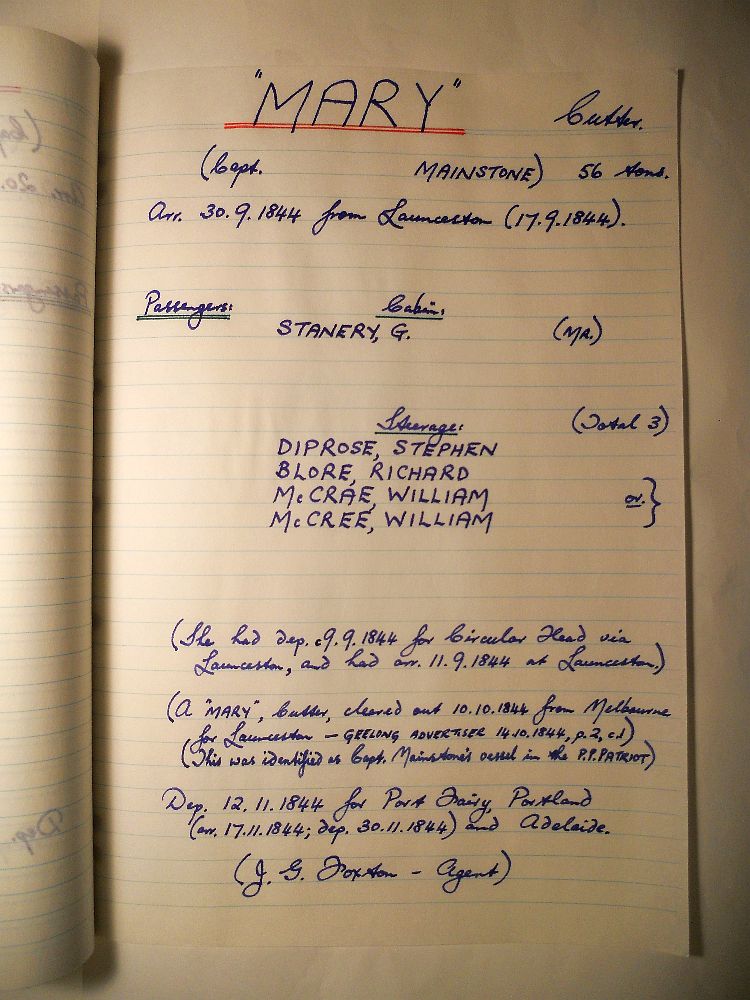 "MARY" Cutter.
(Capt. MAINSTONE) 56 tons.
Arr. 30.9.1844 from Launceston (17.9.1844).
Passengers: Cabin:
STANERY, G. (MR.)
Steerage: (Total 3)
DIPROSE, STEPHEN
BLORE, RICHARD
McCRAE, WILLIAM
or. }
McCREE, WILLIAM
(She had dep. c9.9.1844 for Circular Head via
Launceston, and had arr. 11.9.1844 at Launceston.)
(A "MARY", Cutter, cleared out 10.10.1844 from Melbourne
for Launceston — GEELONG ADVERTISER 14.10.1844, p.2, c.1)
(This was identified as Capt. Mainstone's vessel in the P.P.PATRIOT)
Dep. 12.11.1844 for Port Fairy, Portland
(arr. 17.11.1844; dep. 30.11.1844) and Adelaide.
(J. G. Foxton - Agent)
Dep.